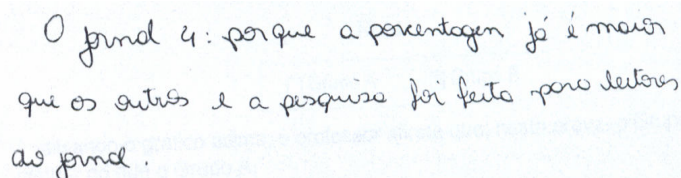 O jornal 4: porque a porcentagen já é maior
que os outros e a pesquisa foi feita para leitores
do jornal.